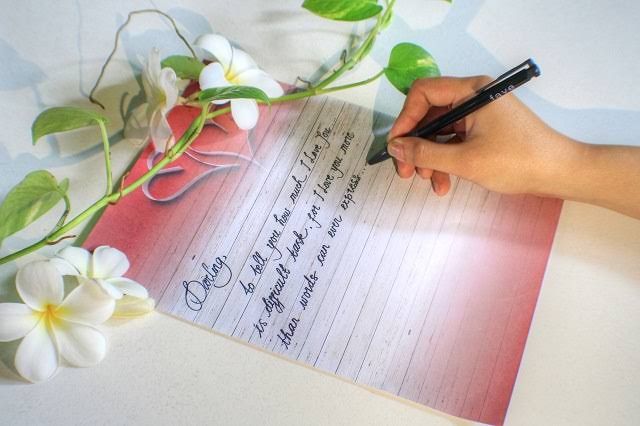 Darling,
to tell you how much I love you
is difficult task, for I love you more
than words can ever express...
fave